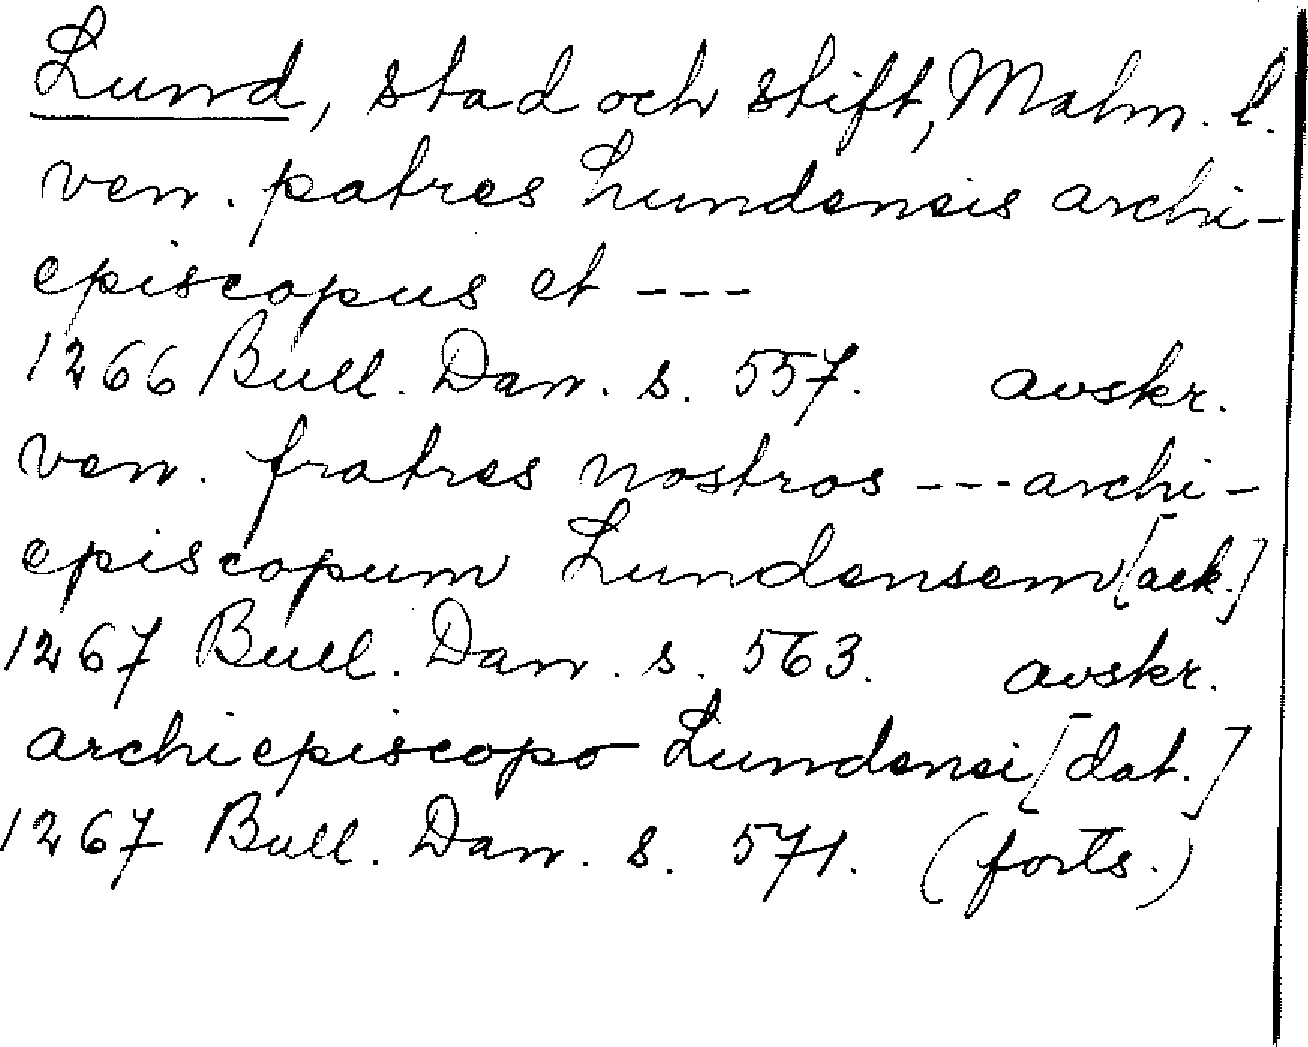 Lund, stad och stift, Malm. l.
ven. patres Lundensis archi-
episcopus et ---
1266 Bull. Dan. s. 557. avskr.
ven. fratres nostros --- archi-
episcopum Lundensem [ack.]
1267 Bull. Dan. s. 563. avskr.
archiepiscopo Lundensi [dat.]
1267 Bull. Dan. s. 571. (forts.)